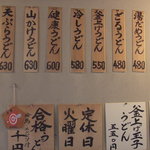 湯だめうどん
480
ざるうどん
480
釜上げうどん
550
冷しうどん
580
健康うどん
600
山かけうどん
630
天ぷらうどん
630
釜上げ玉子
うどん
定休日
火曜日
合格うどん
千円